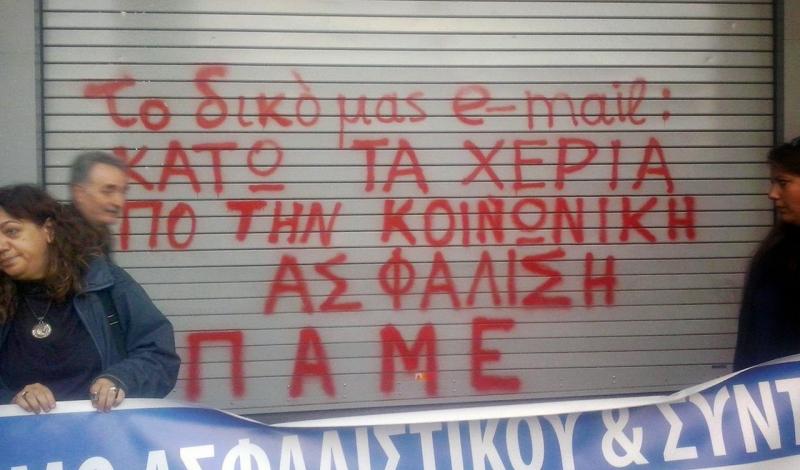 το δικὸ μας e-mail:
ΚΑΤΩ ΤΑ ΧΕΡΙΑ
ΠΟ ΤΗΝ ΚΟΙΝΩΝΙΚΗ
ΑΣΦΑΛΙΣΗ
ΠΑΜΕ
ΑΣΦΑΛΙΣΤΙΚΟΥ & ΣΥΝΤ